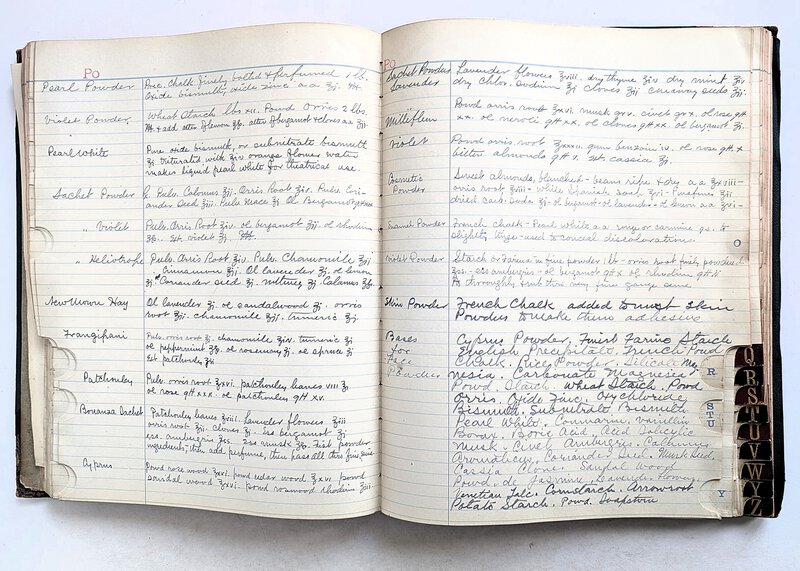 Po
Pearl Powder Prec. Chalk finely bolted & perfumed 1 lb.
Oxide bismuth, oxide zinc a a ʒj.
Violet Powder, Wheat Starch lbs xii. Powd Orris 2 lbs.
add attar of lemon attar of bergamot & cloves a a ʒij
Pearl White Pure oxide bismuth, or subnitrate bismuth
ʒj triturated with ʒiv orange flower water
makes liquid pearl white for theatrical use.
Sachet Powder Pulv. Calamus ʒij. Orris Root ʒiv. Pulv. Cori-
ander Seed ʒij. Pulv. Mace ʒj. Ol Bergamot
" Violet Pulv. Orris Root ʒiv. ol bergamot ʒij. ol rhodium
Ext. violet ʒj.
" Heliotrope Pulv. Orris Root ʒvi. Pulv. Chamomile ʒvi
Cinnamon ʒij. Ol lavender ʒj. ol lemon
ʒj. Coriander seed ʒj. nutmeg ʒj. Calamus
New Mown Hay Ol lavender ʒj. ol sandalwood ʒj. orris
root ʒij. chamomile ʒij. tumeric ʒj.
Frangipani Pulv. orris root ʒj. chamomile ʒiv. tumeric ʒj
ol peppermint ol rosemary ʒj. ol spruce ʒj
Ext. patchouly ʒii
Patchouley Pulv. orris root ʒxvi. patchouley leaves viii ʒj
ol rose gtt xxx. ol patchouley gtt xv.
Bonanza Sachet Patchouley leaves ʒviii. lavender flowers ʒiii
orris root ʒij. cloves ʒj. ess bergamot ʒj
ess. ambergris ʒss. ess musk First powder
ingredients, then add perfume, then pass all thro fine sieve
Cyprus Powd rose wood ʒxvi. powd cedar wood ʒxvi powd
sandal wood ʒxvi. powd roswood rhodium ʒiii.
Po
Sachet Powders Lavender flowers ʒviii. dry thyme ʒiv dry mint ʒiv
Lavender dry chlor. sodium ʒj cloves ʒj caraway seeds ʒij.
Millefleur Powd orris root ʒxvi musk gr v. civet gr x. ol rose gtt
xx. ol neroli gtt xx. ol cloves gtt xx. ol bergamot ʒj.
Violet Powd orris root ʒxxxii. gum benzoin iv. ol rose gtt x
bitter almonds gtt v. Ext cassia ʒj.
Cosmetic Sweet almonds, blanched - beans ripe & dry a a ʒxviii-
Powder orris root ʒviii - white Spanish soap ʒvi - Perfume ʒj
dried Carb. Soda ʒj - ol bergamot - ol lavender - ol lemon a a ʒvi -
Powder French chalk - Pearl White a a rouge or carmine q.s. to
slightly tinge - used to conceal discolorations.
Violet Powder Starch or Farina in fine powder 1 lb - orris root finely powdered
ʒss - ess ambergris - ol bergamot gtt x. ol rhodium gtt
thoroughly thru very fine gauze sieve
Skin Powder French Chalk added to most skin
Powders to make them adhesive
Bases Cyprus Powder, Finest Farina Starch
for English Precipitate, French Powd
Face Chalk. Rice Powder. Silicate Mag
Powder nesia. Carbonate Magnesia
Powd Starch. Wheat Starch. Powd
Orris. Oxide Zinc. Oxychloride
Bismuth. Subnitrate Bismuth
Pearl White. Coumarin. vanillin
Borax. Boric Acid. Acid Salicylic
Musk. Civet. Ambergris. Calamus
Aromaticus. Coriander Seed. Musk Seed.
Cassia Clove. Santal Wood
Powd. de Jasmine. Lavender flowers.
Venetian Talc. Cornstarch. Arrowroot
Potato Starch. Powd. Soapstone
O
R
STU
Y
Q
R
S
T
U
V
W
Y
Z